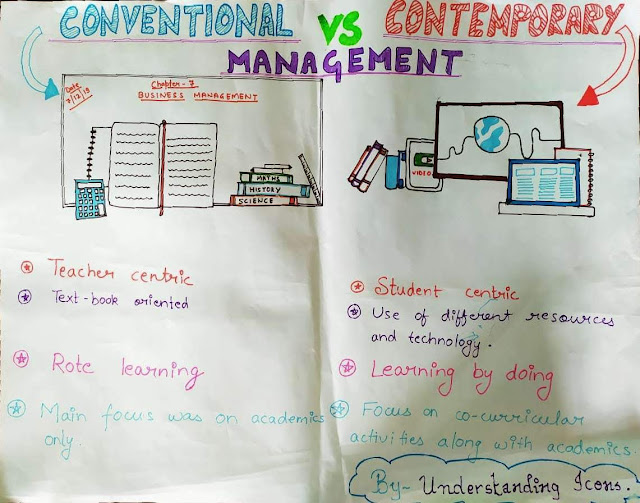 CONVENTIONAL VS CONTEMPORARY
MANAGEMENT
Date
7/12/19
Chapter-7
BUSINESS MANAGEMENT
MATHS
HISTORY
SCIENCE
VIDEO
Teacher centric
Text-book oriented
Rote learning
Main focus was on academics
only.
Student centric
Use of different resources
and technology.
Learning by doing
Focus on co-curricular
activities along with academics.
By- Understanding Icons.